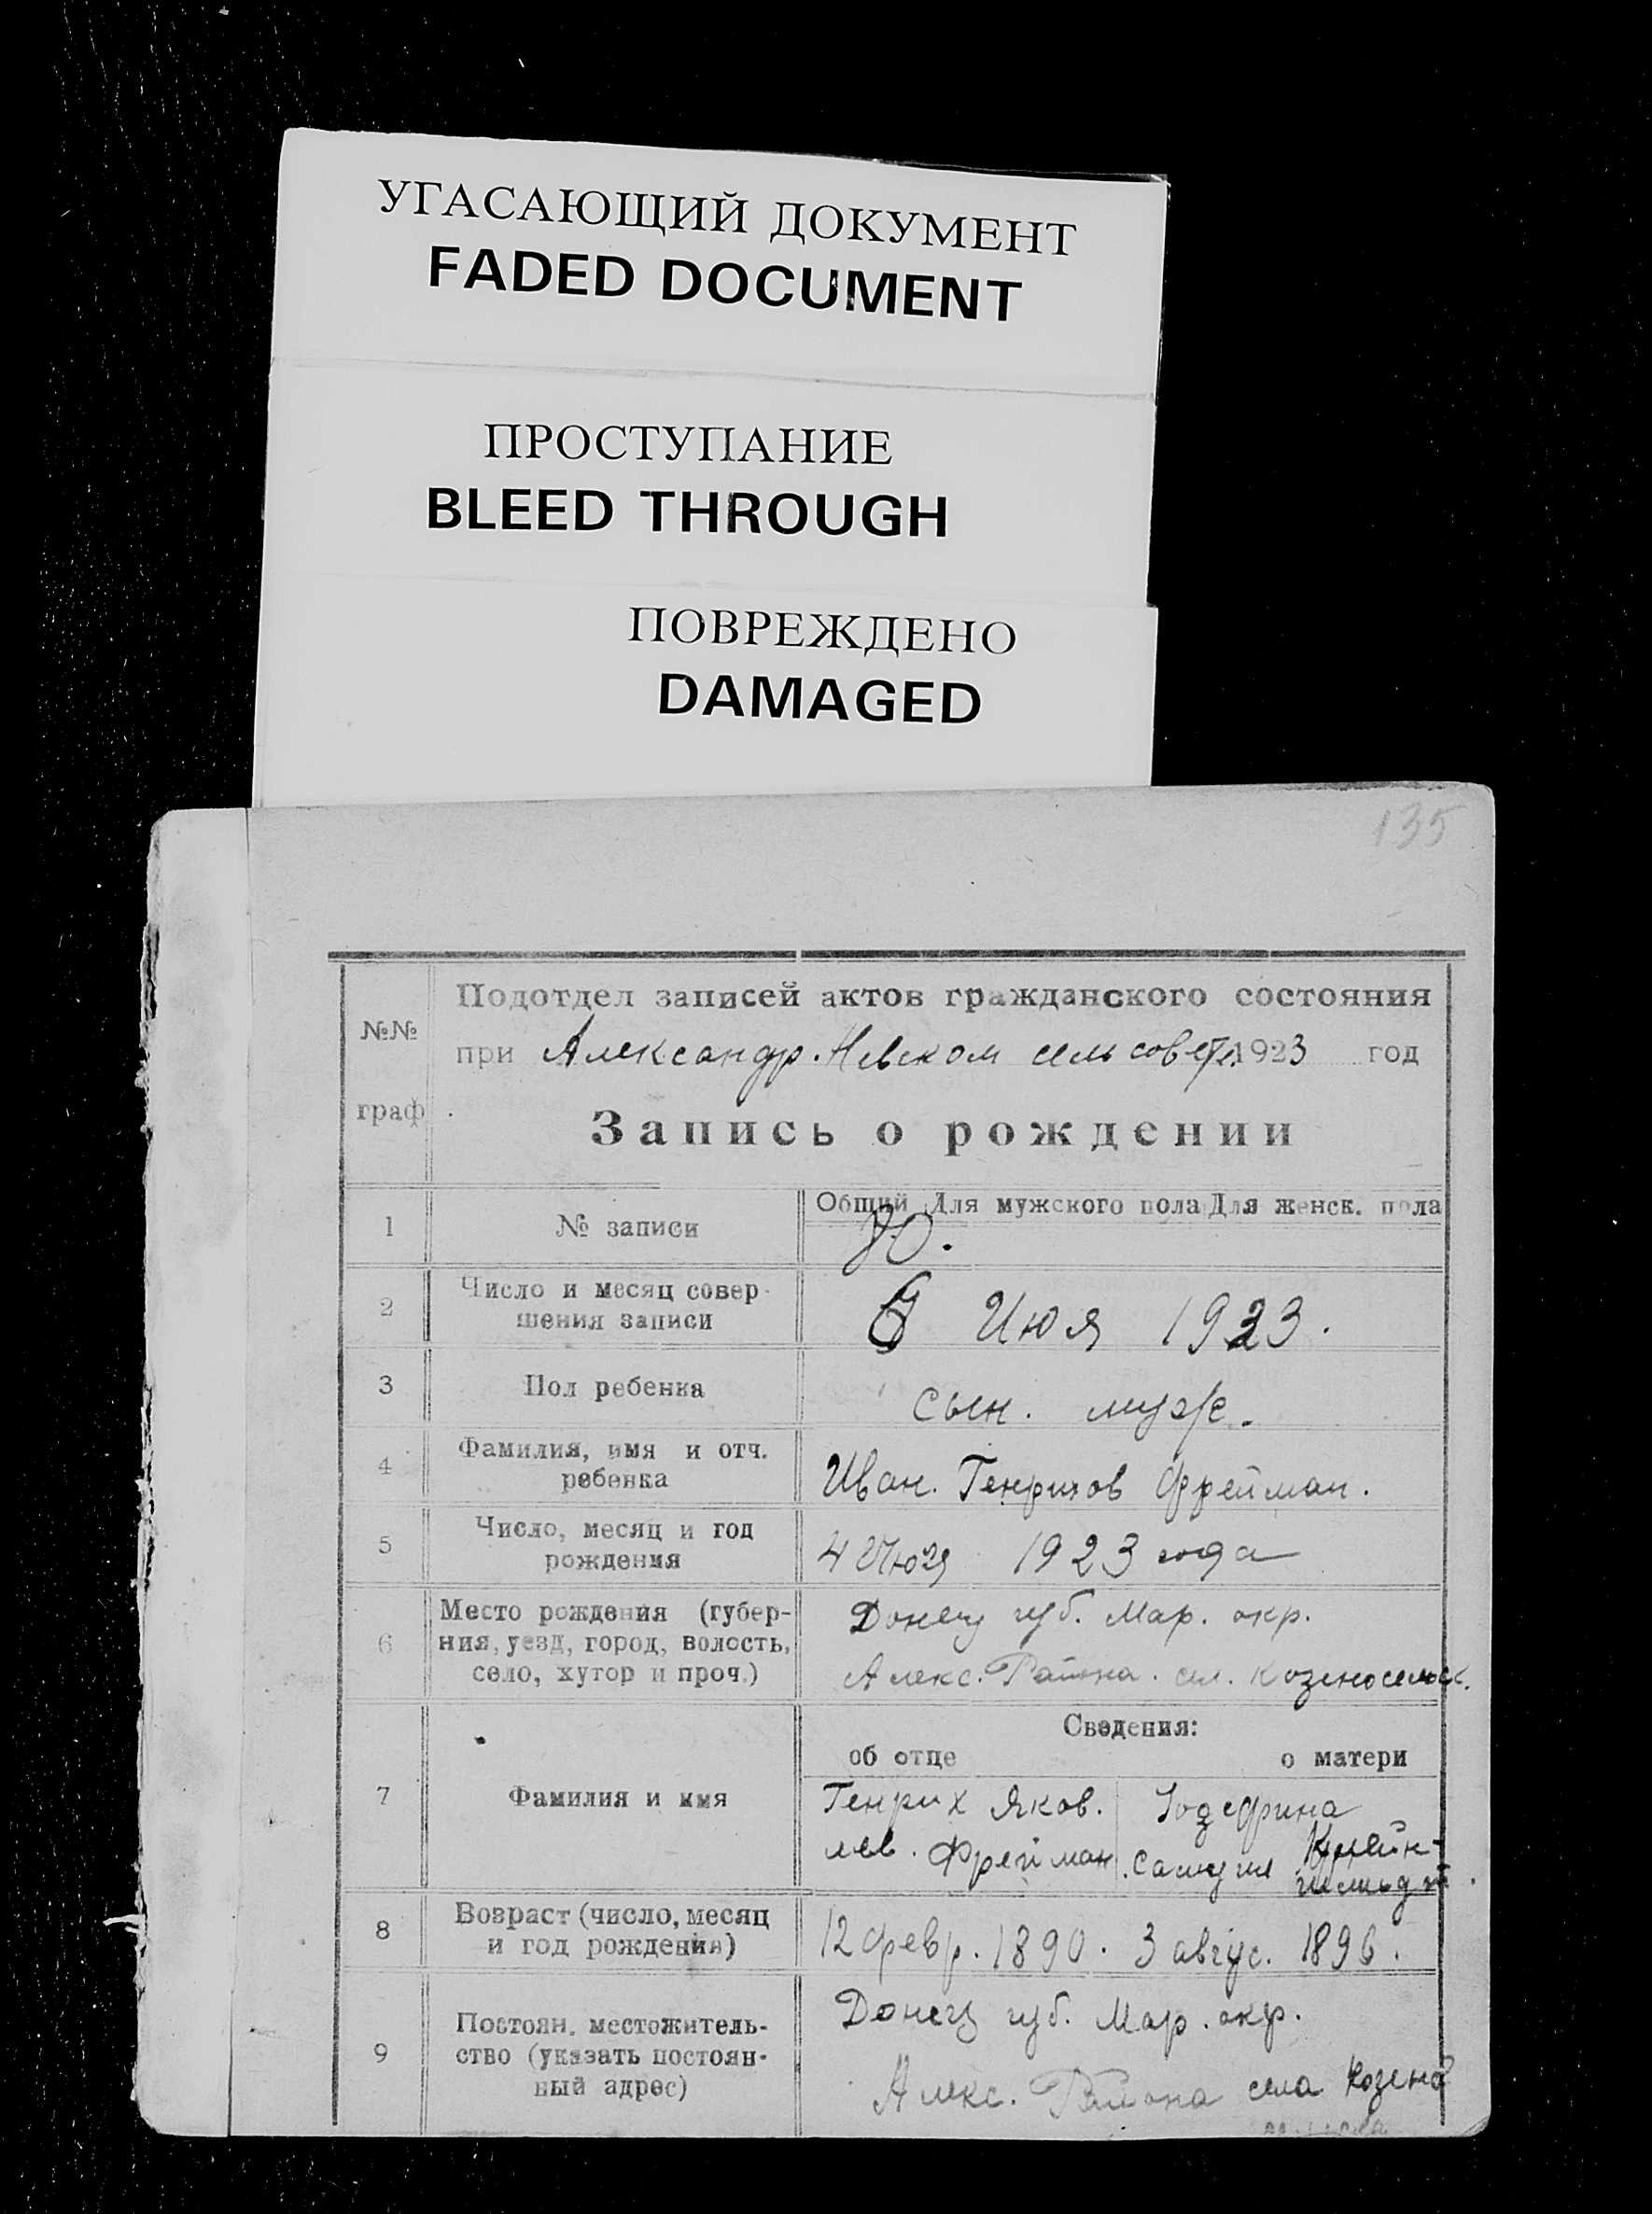 УГАСАЮЩИЙ ДОКУМЕНТ
FADED DOCUMENT
ПРОСТУПАНИЕ
BLEED THROUGH
ПОВРЕЖДЕНО
DAMAGED
135
№№ граф
Подотдел записей актов гражданского состояния
при Александр. Невском сельсовет. 1923 год
Запись о рождении
Общий Для мужского пола Для женск. пола
1 № записи
2 Число и месяц совер-
шения записи
Июя 1923.
3 Пол ребенка
сын. муж.
4 Фамилия, имя и отч.
ребенка
Иван. Генрихов Фрейман.
5 Число, месяц и год
рождения
4 Июя 1923 года
6 Место рождения (губер-
ния, уезд, город, волость,
село, хутор и проч.)
Донец губ. Мар. окр.
Алекс. Района. сел. Козеносельск.
Сведения:
об отце о матери
7 Фамилия и имя
Генрих Яков. Иозефина
лев. Фрейман.
8 Возраст (число, месяц
и год рождения)
12 февр. 1890. 3 авгус. 1896.
9 Постоян. местожитель-
ство (указать постоян-
ный адрес)
Донец губ. Мар. окр.
Алекс. Района села Козено